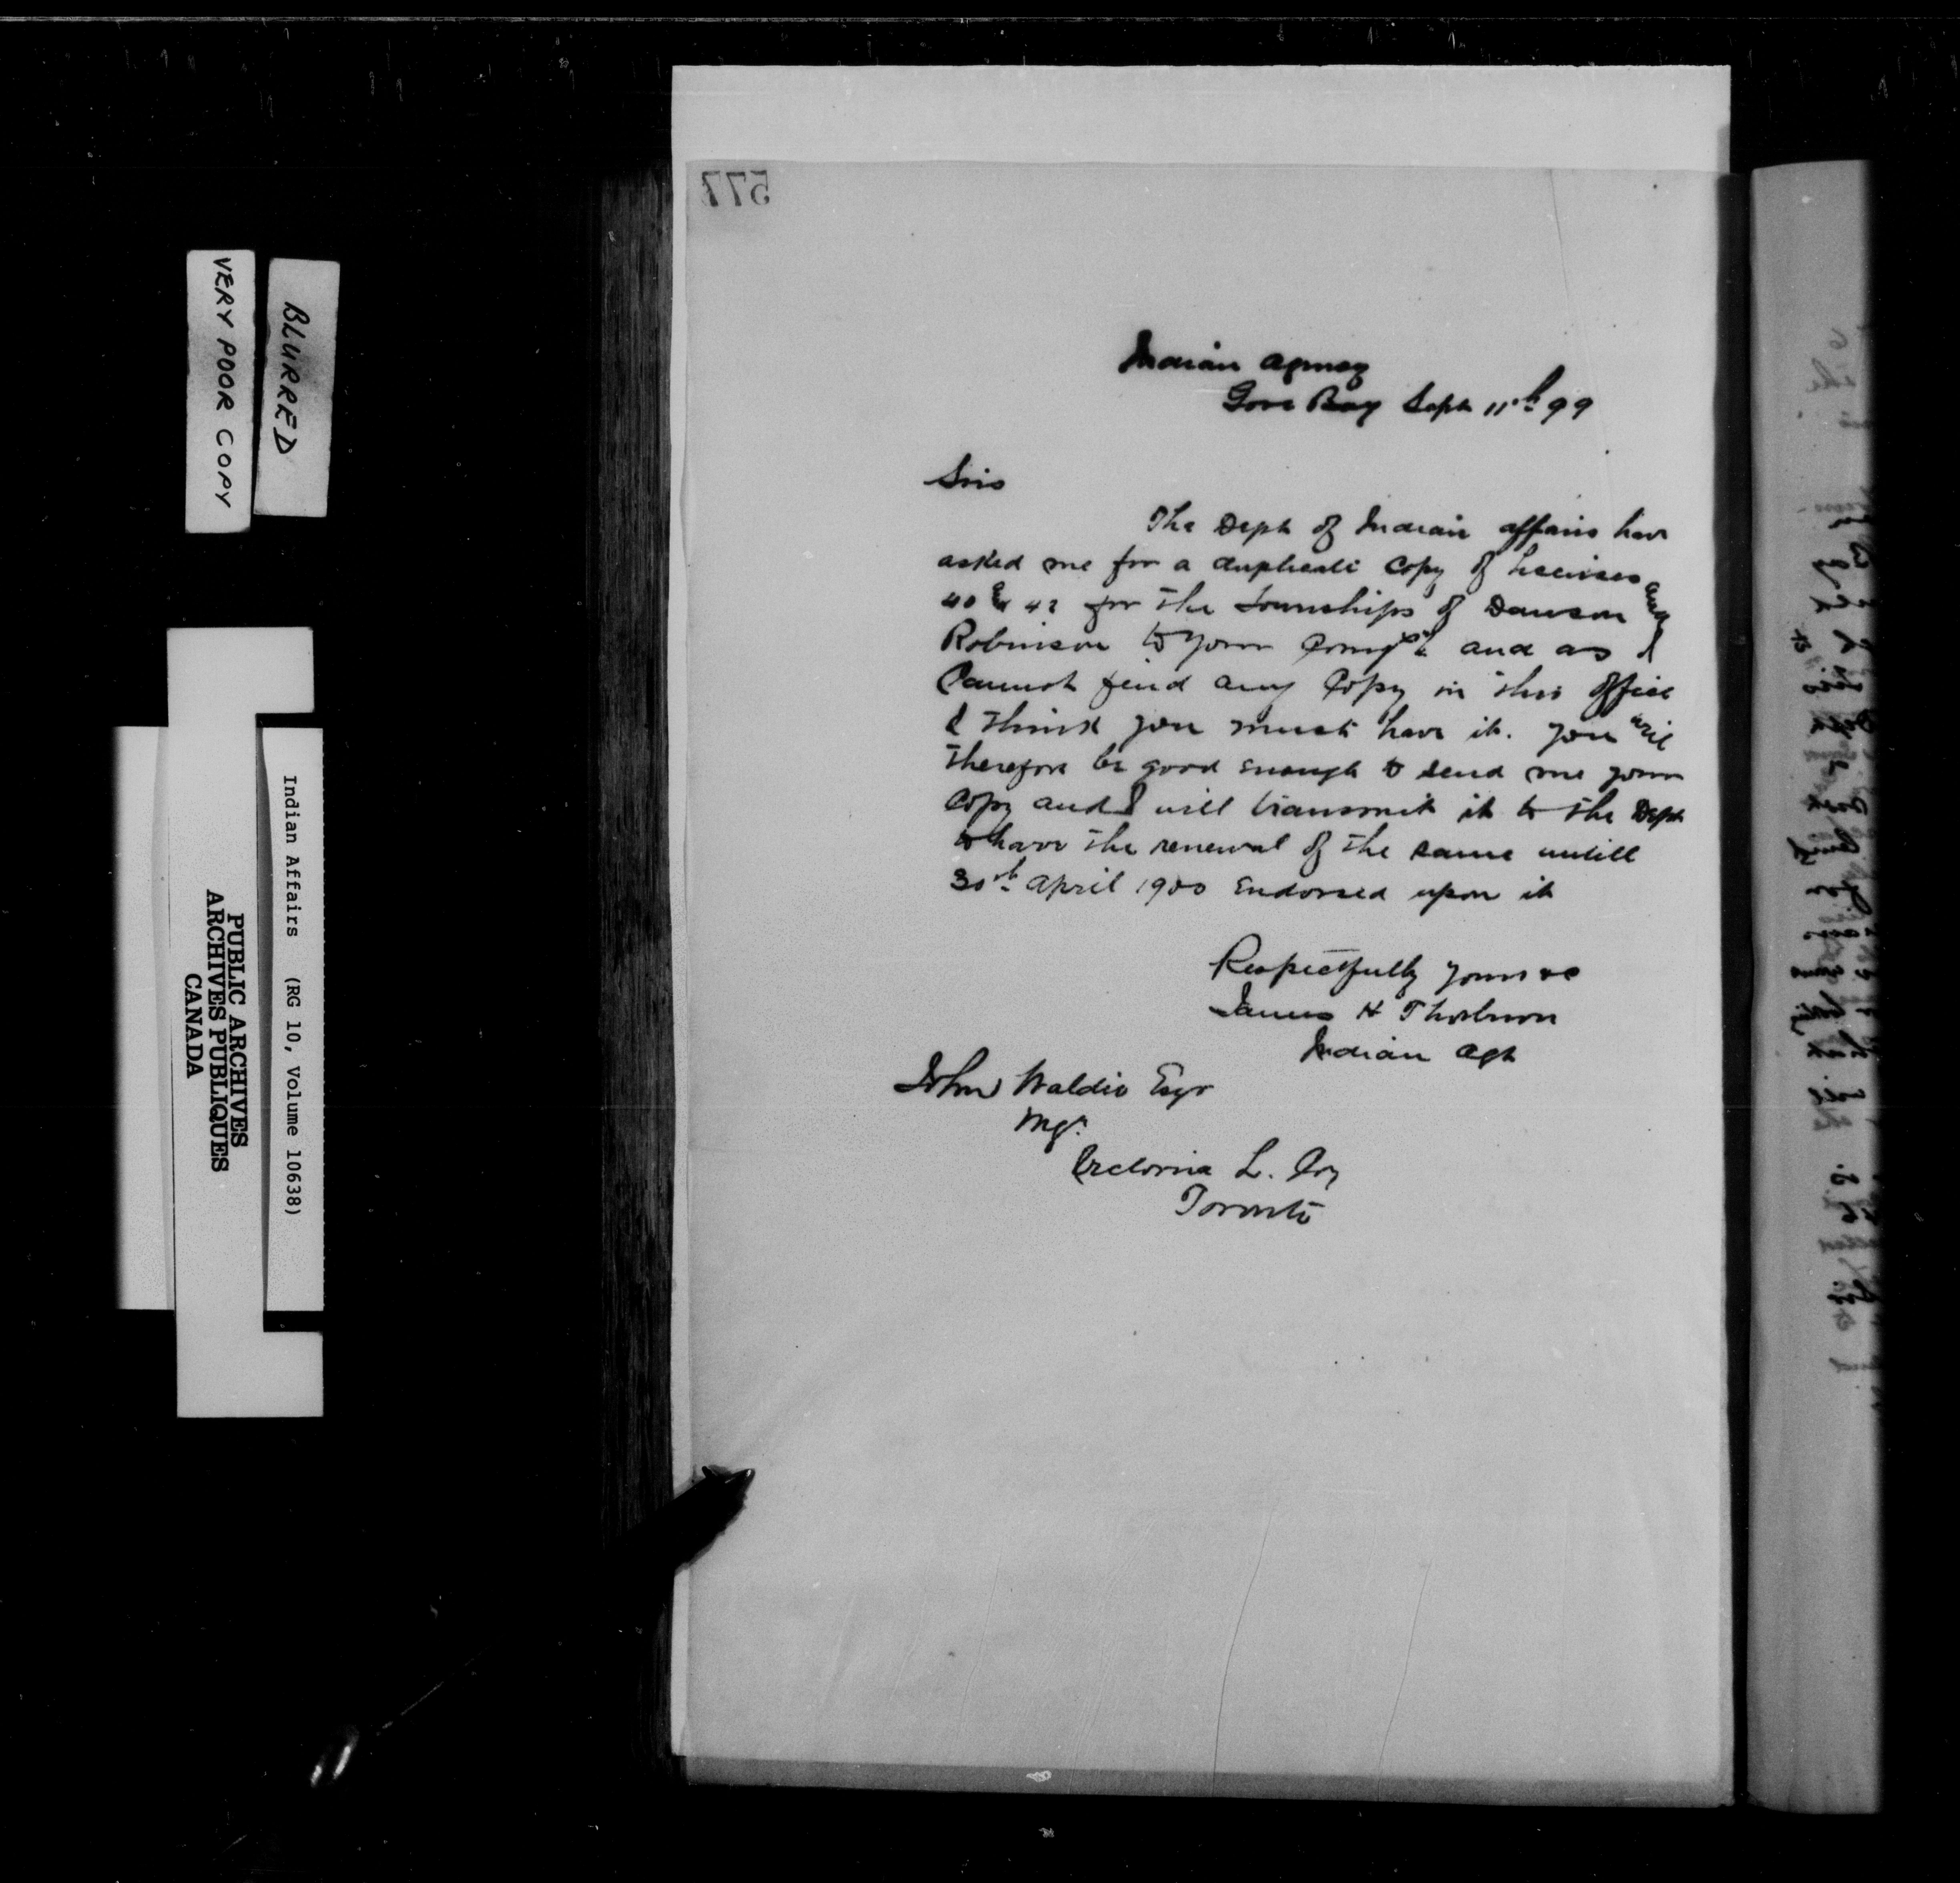 577
Indian Agency
Gore Bay Sept 11th 99
Sirs
The Dept of Indian affairs have
asked me for a duplicate Copy of Licenses
40 & 42 for the townships of Dawson and
Robinson to your Compy and as I
Cannot find any Copy in this office
I think you must have it. You will
therefore be good enough to send me your
Copy and I will transmit it to the Dept
to have the renewal of the same untill
30th April 1900 Endorsed upon it
Respectfully yours &c
James H Thorburn
Indian Agt
John Waldie Esqr
Mgr
Victoria L. Coy
Toronto
BLURRED
VERY POOR COPY
Indian Affairs (RG 10, Volume 10638)
PUBLIC ARCHIVES
ARCHIVES PUBLIQUES
CANADA